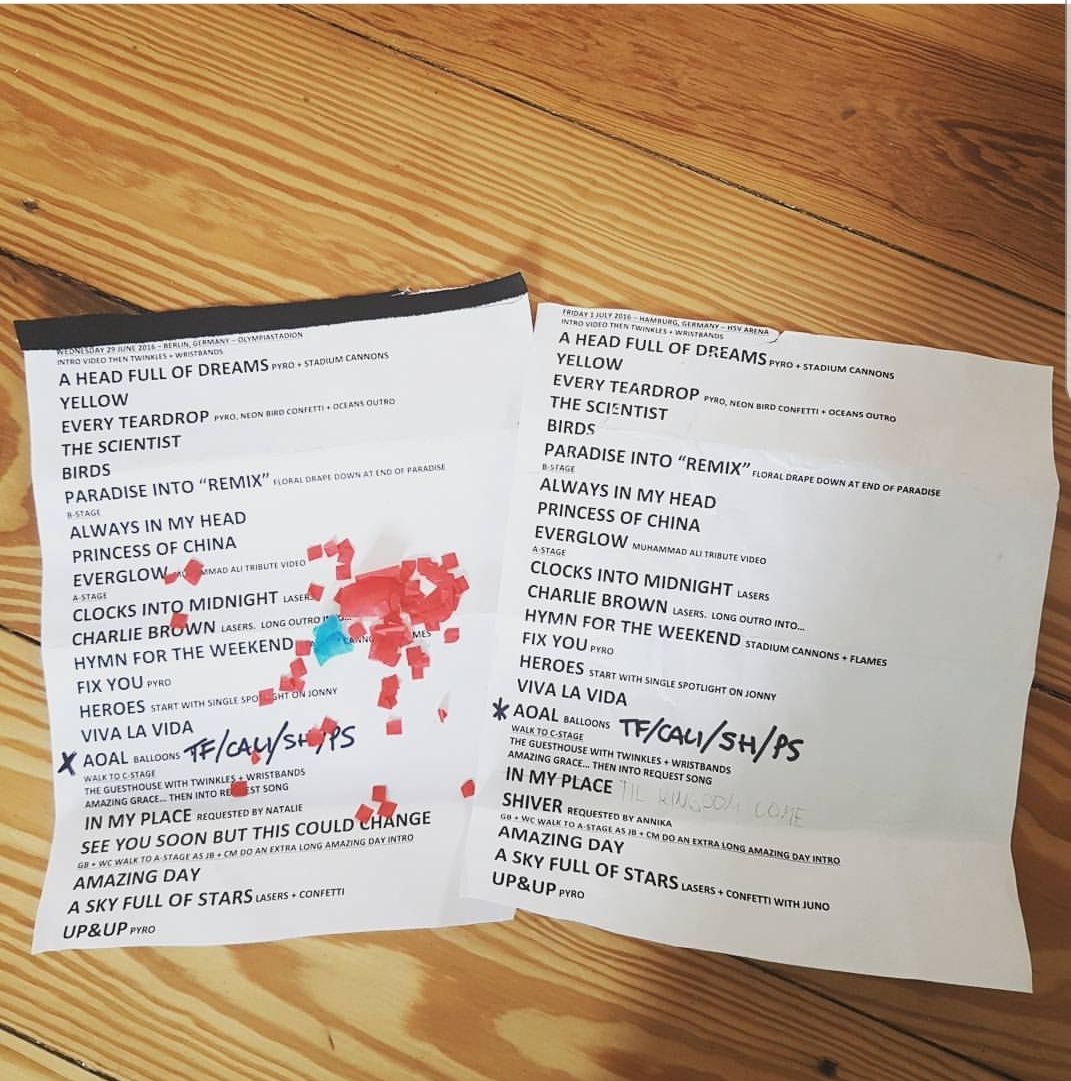 WEDNESDAY 29 JUNE 2016 – BERLIN, GERMANY – OLYMPIASTADION
INTRO VIDEO THEN TWINKLES + WRISTBANDS
A HEAD FULL OF DREAMS PYRO + STADIUM CANNONS
YELLOW
EVERY TEARDROP PYRO, NEON BIRD CONFETTI + OCEANS OUTRO
THE SCIENTIST
BIRDS
PARADISE INTO “REMIX” FLORAL DRAPE DOWN AT END OF PARADISE
B-STAGE
ALWAYS IN MY HEAD
PRINCESS OF CHINA
EVERGLOW ALI TRIBUTE VIDEO
A-STAGE
CLOCKS INTO MIDNIGHT LASERS
CHARLIE BROWN LASERS. LONG OUTRO
HYMN FOR THE WEEKEND
FIX YOU PYRO
HEROES START WITH SINGLE SPOTLIGHT ON JONNY
VIVA LA VIDA
X AOAL BALLOONS TF/CALI/SH/PS
WALK TO C-STAGE
THE GUESTHOUSE WITH TWINKLES + WRISTBANDS
AMAZING GRACE... THEN INTO REQUEST SONG
IN MY PLACE REQUESTED BY NATALIE
SEE YOU SOON BUT THIS COULD CHANGE
GB + WC WALK TO A-STAGE AS JB + CM DO AN EXTRA LONG AMAZING DAY INTRO
AMAZING DAY
A SKY FULL OF STARS LASERS + CONFETTI
UP&UP PYRO
FRIDAY 1 JULY 2016 – HAMBURG, GERMANY – HSV ARENA
INTRO VIDEO THEN TWINKLES + WRISTBANDS
A HEAD FULL OF DREAMS PYRO + STADIUM CANNONS
YELLOW
EVERY TEARDROP PYRO, NEON BIRD CONFETTI + OCEANS OUTRO
THE SCIENTIST
BIRDS
PARADISE INTO “REMIX” FLORAL DRAPE DOWN AT END OF PARADISE
B-STAGE
ALWAYS IN MY HEAD
PRINCESS OF CHINA
EVERGLOW MUHAMMAD ALI TRIBUTE VIDEO
A-STAGE
CLOCKS INTO MIDNIGHT LASERS
CHARLIE BROWN LASERS. LONG OUTRO INTO...
HYMN FOR THE WEEKEND STADIUM CANNONS + FLAMES
FIX YOU PYRO
HEROES START WITH SINGLE SPOTLIGHT ON JONNY
VIVA LA VIDA
* AOAL BALLOONS TF/CALI/SH/PS
WALK TO C-STAGE
THE GUESTHOUSE WITH TWINKLES + WRISTBANDS
AMAZING GRACE... THEN INTO REQUEST SONG
IN MY PLACE TIL KINGDOM COME
SHIVER REQUESTED BY ANNIKA
GB + WC WALK TO A-STAGE AS JB + CM DO AN EXTRA LONG AMAZING DAY INTRO
AMAZING DAY
A SKY FULL OF STARS LASERS + CONFETTI WITH JUNO
UP&UP PYRO